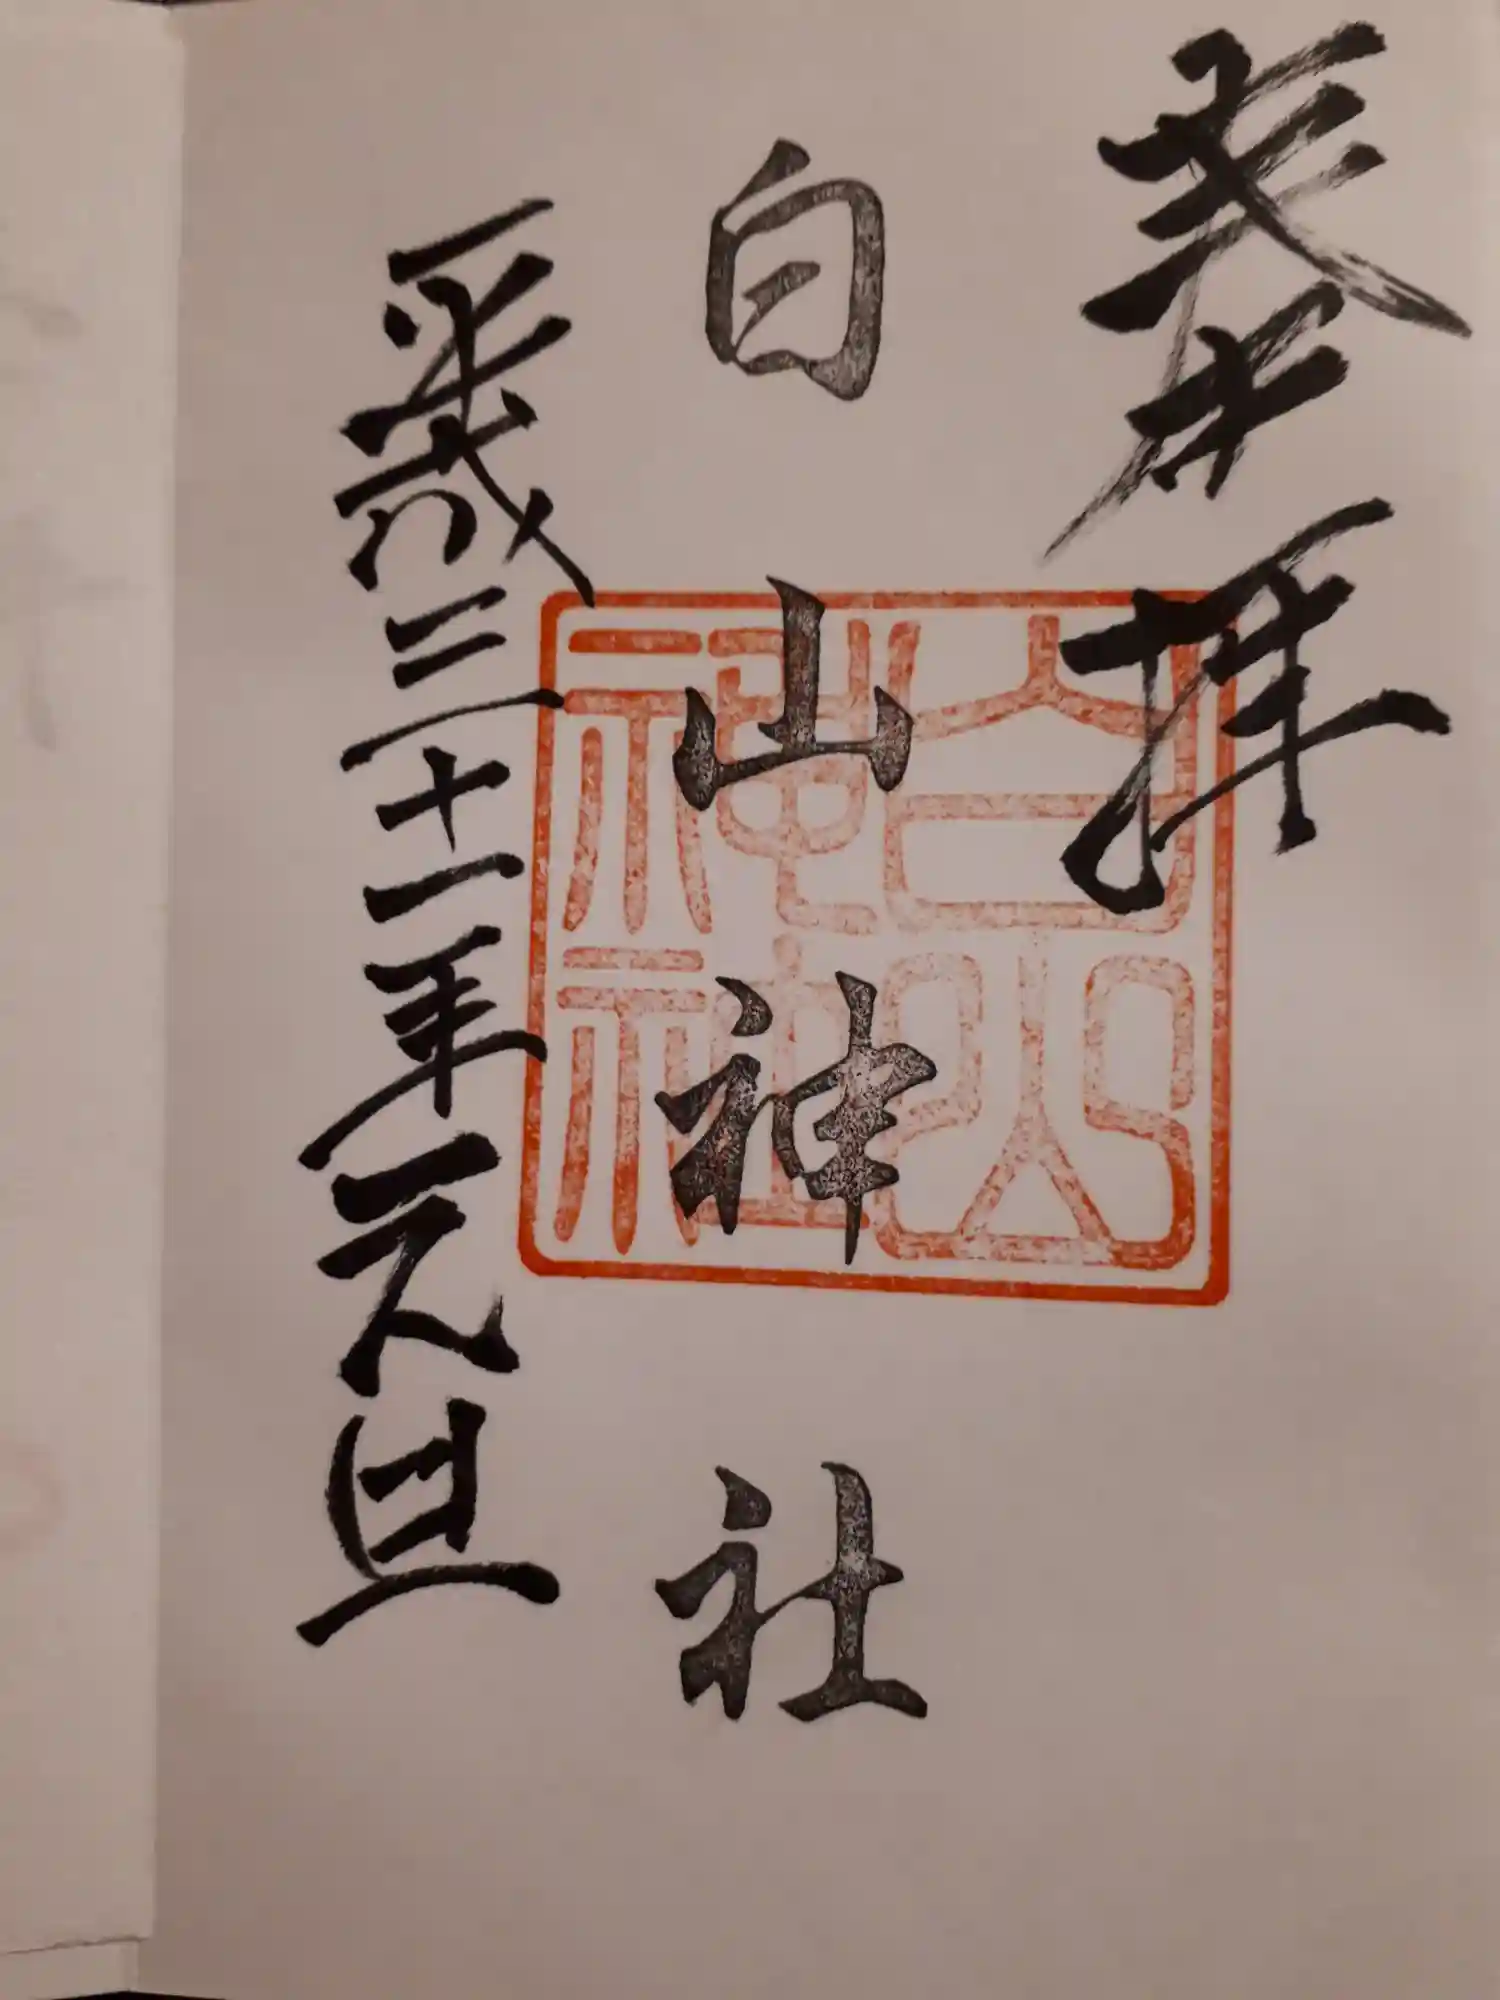 奉拝
白山神社
白山神社
平成三十一年元旦